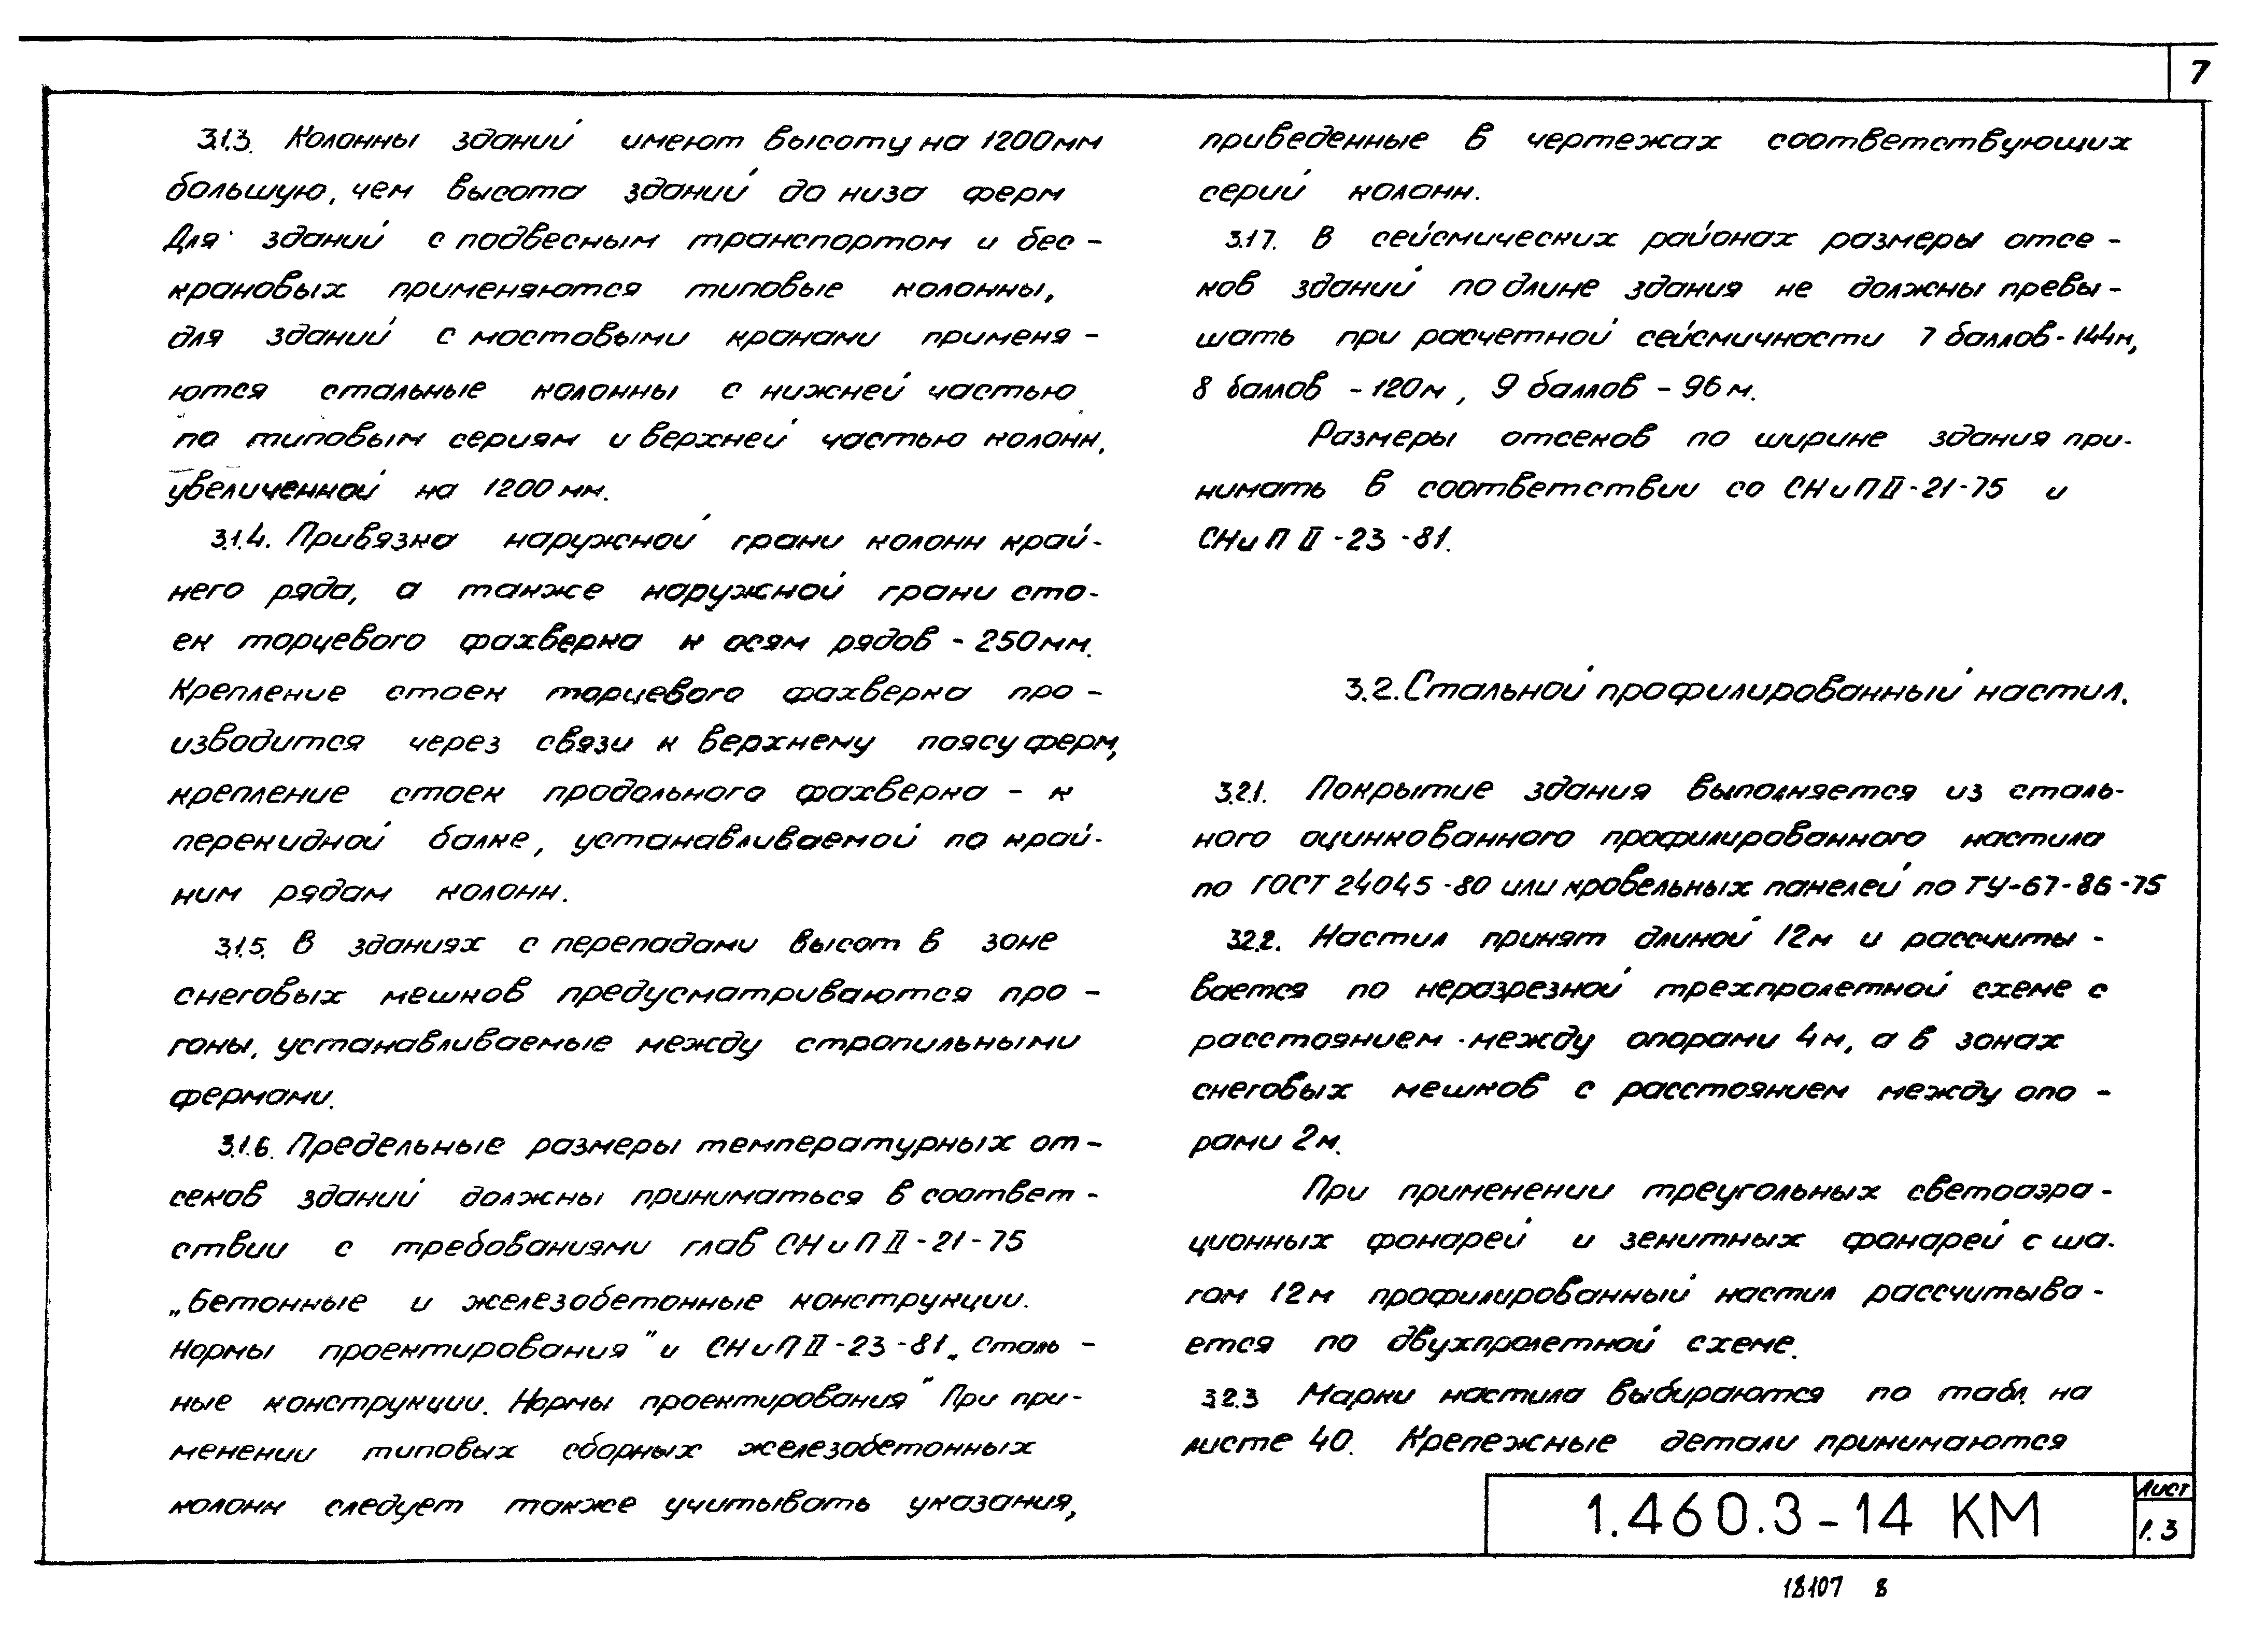 7
3.1.3. Колонны зданий имеют высоту на 1200мм
большую, чем высота зданий до низа ферм
Для зданий с подвесным транспортом и бес-
крановых применяются типовые колонны,
для зданий с мостовыми кранами применя-
ются стальные колонны с нижней частью
по типовым сериям и верхней частью колонн,
увеличенной на 1200 мм.
3.1.4. Привязка наружной грани колонн край-
него ряда, а также наружной грани сто-
ек торцевого фахверка к осям рядов - 250мм.
Крепление стоек торцевого фахверка про-
изводится через связи к верхнему поясу ферм,
крепление стоек продольного фахверка - к
перекидной балке, устанавливаемой по край-
ним рядам колонн.
3.1.5. В зданиях с перепадами высот в зоне
снеговых мешков предусматриваются про-
гоны, устанавливаемые между стропильными
фермами.
3.1.6. Предельные размеры температурных от-
секов зданий должны приниматься в соответ-
ствии с требованиями глав СНиП II-21-75
„Бетонные и железобетонные конструкции.
Нормы проектирования" и СНиП II-23-81 „Сталь-
ные конструкции. Нормы проектирования" При при-
менении типовых сборных железобетонных
колонн следует также учитывать указания,
приведенные в чертежах соответствующих
серий колонн.
3.1.7. В сейсмических районах размеры отсе-
ков зданий по длине здания не должны превы-
шать при расчетной сейсмичности 7 баллов - 144м,
8 баллов - 120м, 9 баллов - 96м.
Размеры отсеков по ширине здания при-
нимать в соответствии со СНиП II-21-75 и
СНиП II-23-81.
3.2. Стальной профилированный настил.
3.2.1. Покрытие здания выполняется из сталь-
ного оцинкованного профилированного настила
по ГОСТ 24045-80 или кровельных панелей по ТУ-67-86-75
3.2.2. Настил принят длиной 12м и рассчиты-
вается по неразрезной трехпролетной схеме с
расстоянием между опорами 4м, а в зонах
снеговых мешков с расстоянием между опо-
рами 2м.
При применении треугольных светоаэра-
ционных фонарей и зенитных фонарей с ша-
гом 12м профилированный настил рассчитыва-
ется по двухпролетной схеме.
3.2.3 Марки настила выбираются по табл. на
листе 40. Крепежные детали принимаются
1.460.3-14 КМ
Лист
1.3
18107 8